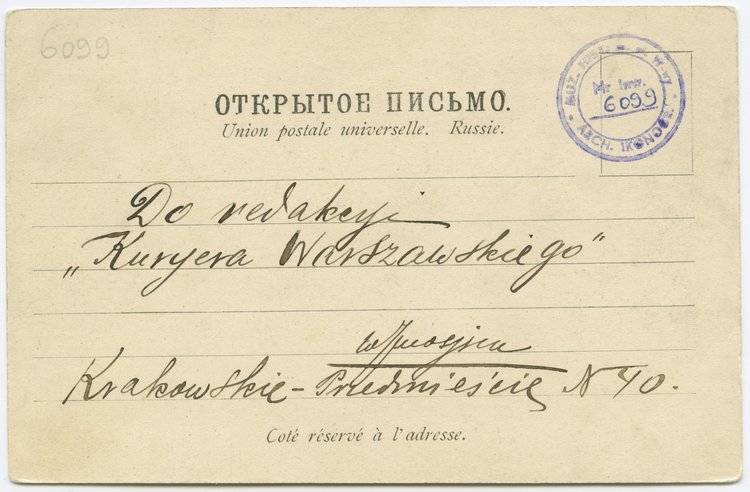 6099
MUZ. HIST. M. W-WY
Nr inw.
6099
ARCH. IKONOGR.
ОТКРЫТОЕ ПИСЬМО.
Union postale universelle. Russie.
Do redakcyi
„Kuryera Warszawskiego"
Krakowskie-Przedmieście N 40.
Coté réservé à l'adresse.